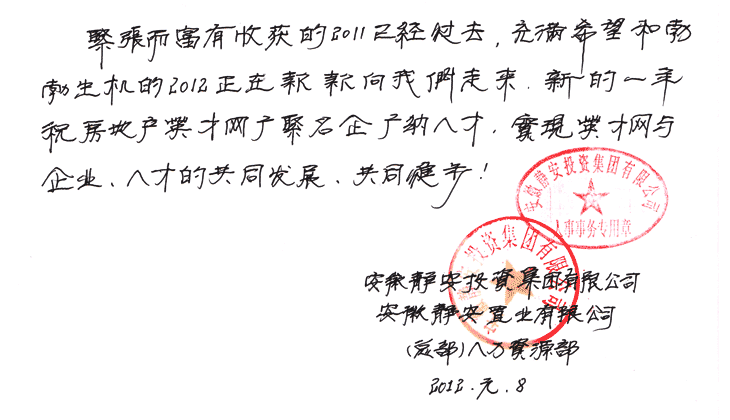 緊張而富有收获的2011已经过去，充滿希望和勃
勃生机的2012正在歀歀向我們走来．新的一年
祝房地户英才网广聚名企广纳人才．實現英才网与
企业、人才的共同发展、共同進步！
安徽静安投资集团有限公司
人事事务专用章
安徽静安投资集团有限公司
安徽静安投資集团有限公司
安徽静安置业有限公司
(总部)人力資源部
2012.元.8